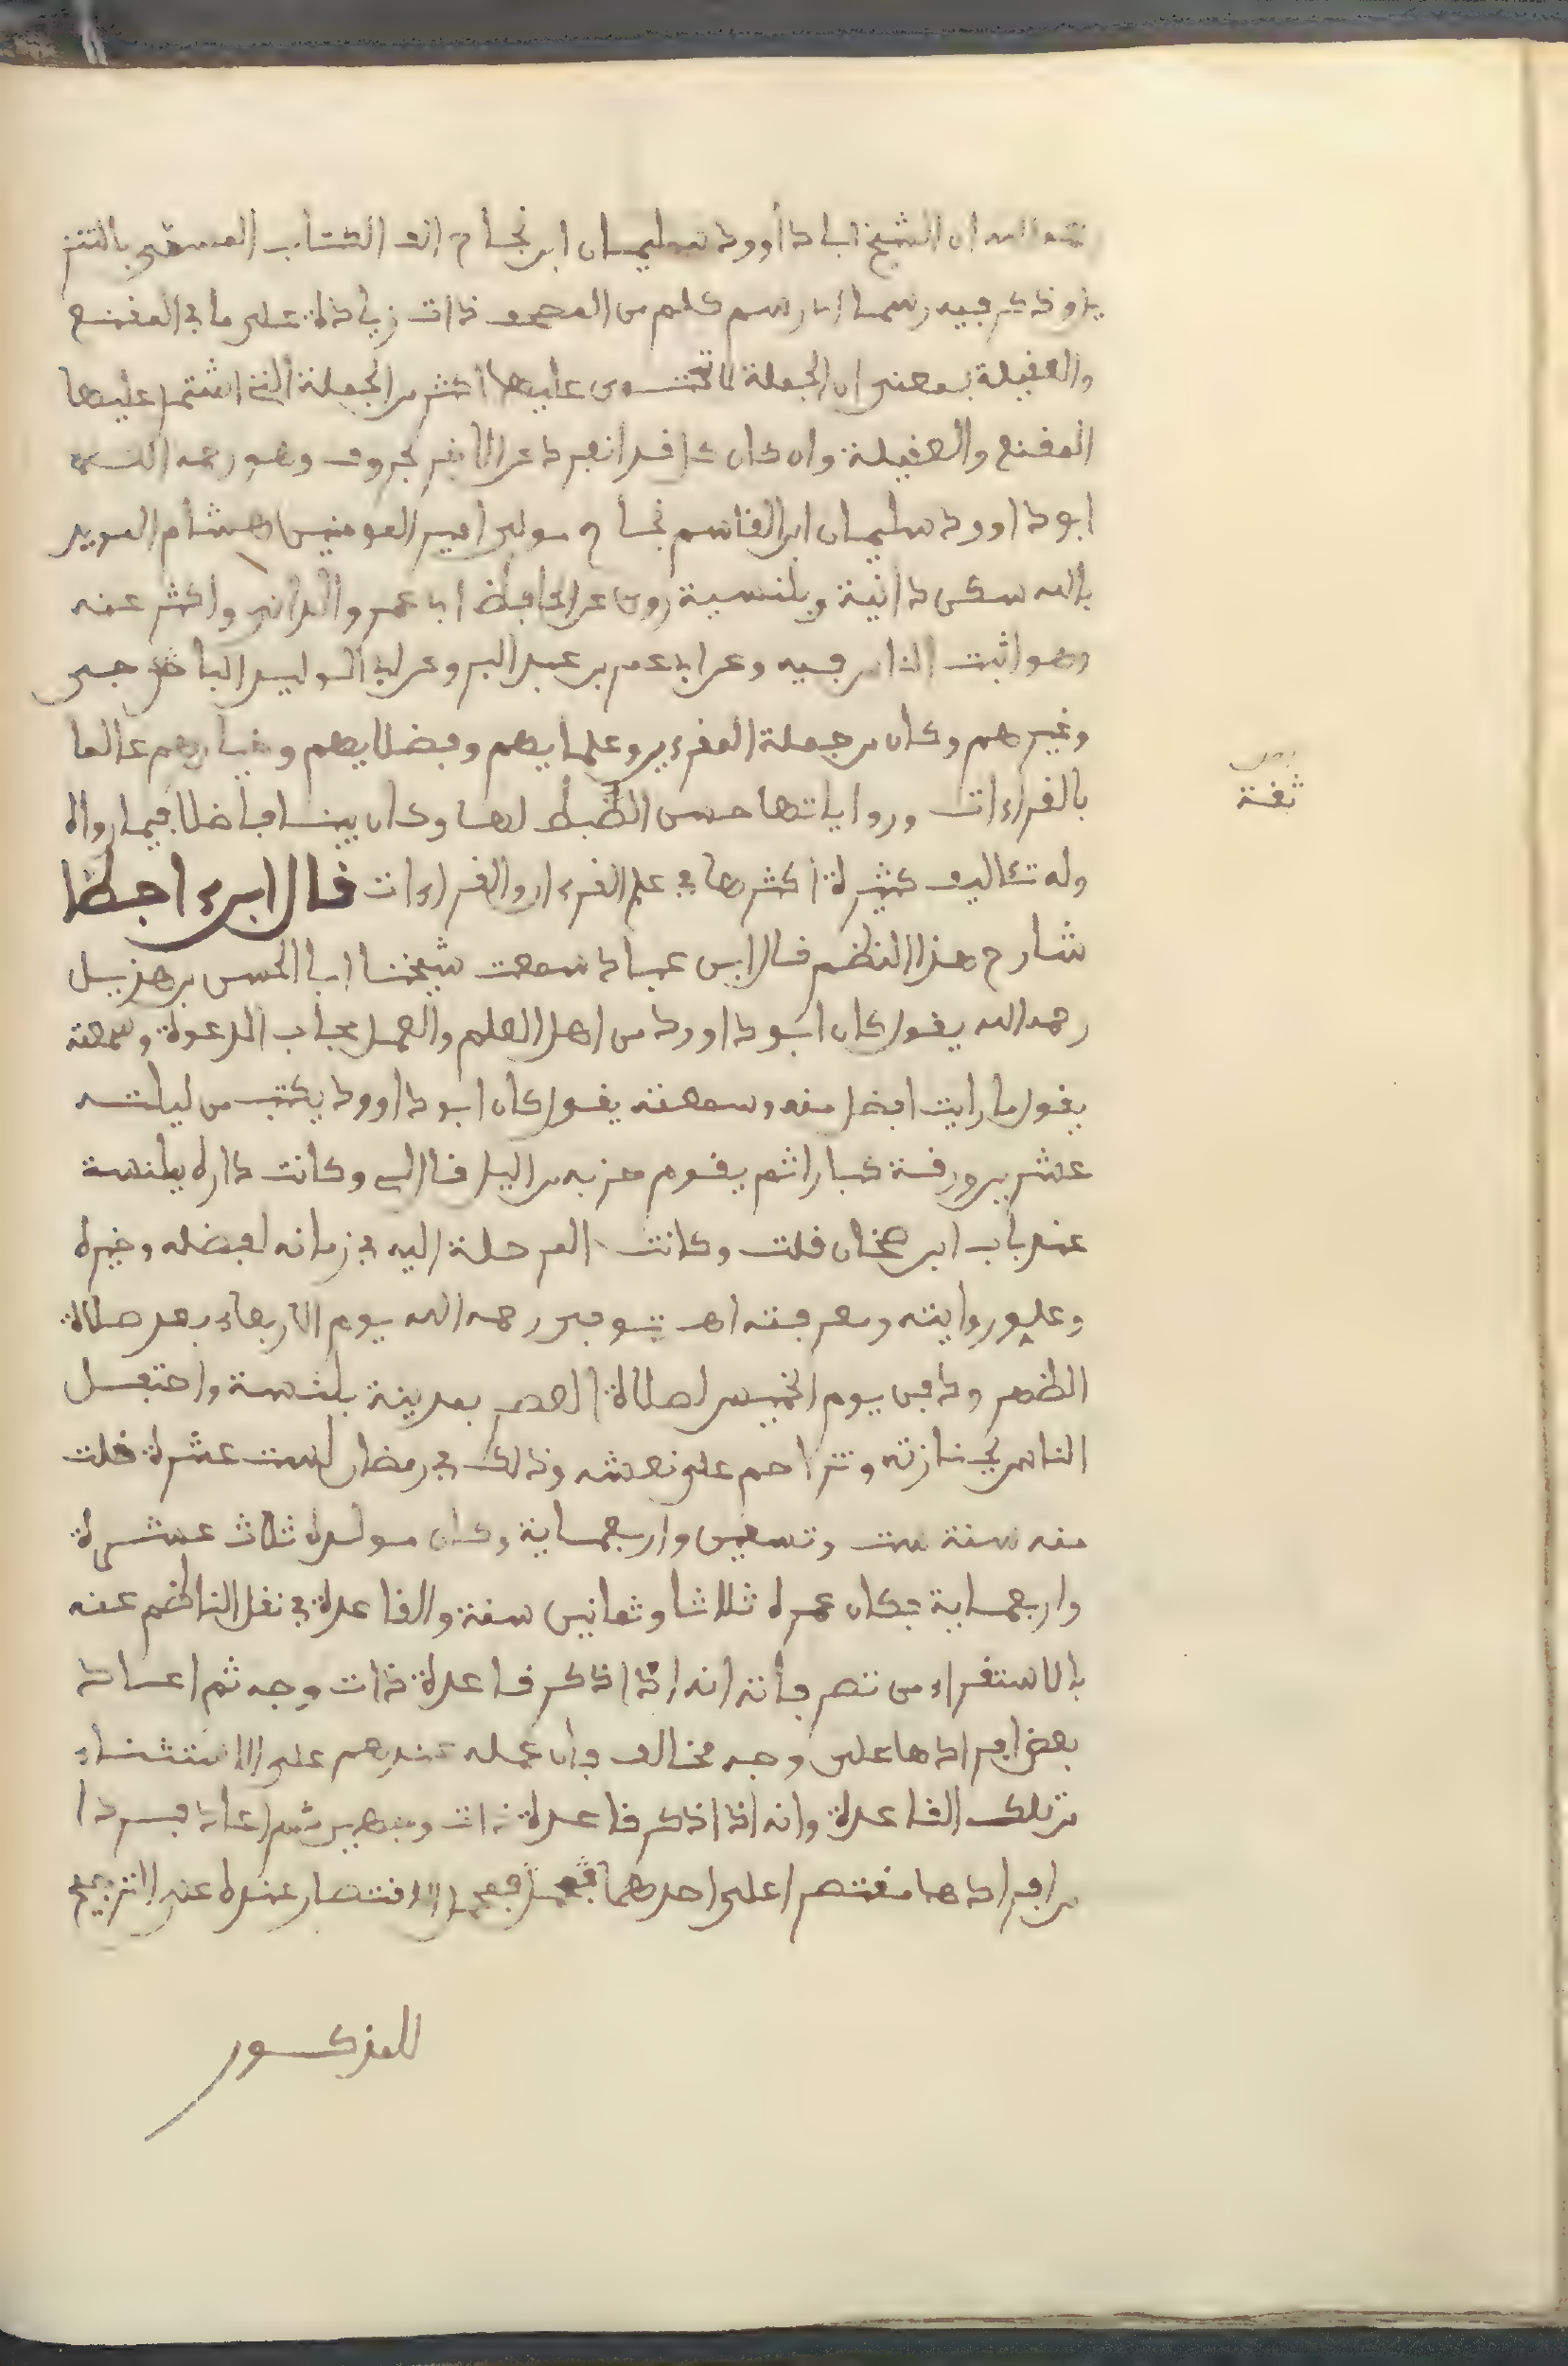 الله ان الشيخ ابا داوود سليمان ابن نجاح الف الكتاب المسمى بالتنز
يل وذكر فيه رسما اي رسم كلم من المصحف ذات زيادة على ما في المقنع
والعقيلة بمعنى ان الجملة التي احتوى عليها اكثر من الجملة التي اشتمل عليها
المقنع والعقيلة وان كان كل قد انفرد عن الاخر بحروف وهو رحمه الله
ابو داوود سليمان ابن القاسم نجاح مولى امير المومنين هشام المويد
بالله سكن دانية وبلنسية روى عن الحافظ ابا عمرو الداني واكثر عنه
وهو اثبت الناس فيه وعن ابي عمر بن عبد البر وعن ابي الوليد الباجي
وغيرهم وكان من جملة المقرءين وعلمايهم وفضلايهم وخيارهم عالما
بالقراءات ورواياتها حسن الظبط لها وكان دينا فاضلا فيما رواه
ثقة
وله تئاليف كثيرة اكثرها في علم القرءان والقراءات قال ابن ءاجطا
شارح هذا النظم قال ابن عياد سمعت شيخنا ابا الحسن بن هذيل
رحمه الله يقول كان ابو داوود من اهل العلم والعمل مجاب الدعوة وسمعته
يقول ما رايت افضل منه وسمعته يقول كان ابو داوود يكتب من ليلته
عشرين ورقة كبارا ثم يقوم حزبه من اليل قال لي وكانت داره ببلنسية
عند باب ابن صخان قلت وكانت الرحلة اليه في زمانه لفضله وخيره
وعلو روايته ومعرفته اهـ توفي رحمه الله يوم الاربعاء بعد صلاة
الظهر ودفن يوم الخميس لصلاة العصر بمدينة بلنسية واحتفل
الناس بجنازته وتزاحم على نعشه وذلك في رمضان لست عشرة خلت
منه سنة ست وتسعين واربعماية وكان مولده ثلاث عشرة
واربعماية فكان عمره ثلاثا وثمانين سنة والقاعدة في نقل الناظم عنه
بالاستقراء من تصرفاته انه اذا ذكر قاعدة ذات وجه ثم اعاد
بعض افرادها على وجه مخالف فان عمله عندهم على الاستثناء
من تلك القاعدة وانه اذا ذكر قاعدة ذات وجهين ثم اعاد فردا
من افرادها مقتصرا على احدهما فمحمل الاقتصار عنده عن الترجيح
للمذكور